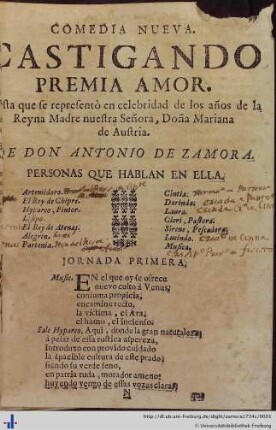 COMEDIA NUEVA.
CASTIGANDO
PREMIA AMOR.
sta que se representò en celebridad de los años de la
Reyna Madre nuestra Señora, Doña Mariana
de Austria.
DE DON ANTONIO DE ZAMORA.
PERSONAS QUE HABLAN EN ELLA.
Artemidora.
El Rey de Chipre.
Hyparco, Pintor.
El Rey de Atenas.
Alegria.
Partenia.
Clotia.
Dorinda.
Laura.
Clori, Pastora.
Sirene, Pescadora.
Lucinda.
Musica.
JORNADA PRIMERA.
Music. EN el que oy se ofrece
nuevo culto à Venus,
en
la victima, el Ara,
el humo, el incienso.
Sale Hyparco. Aqui, donde la gran naturaleza
à pesar de essa rustica aspereza,
introduxo con provido cuidado
la apacible cultura de este prado;
siendo su verde seno,
en patria ruda, morador ameno:
huyendo vengo de essas vozes claras,
N
http://dl.ub.uni-freiburg.de/diglit/zamora1734c/0001
© Universitätsbibliothek Freiburg